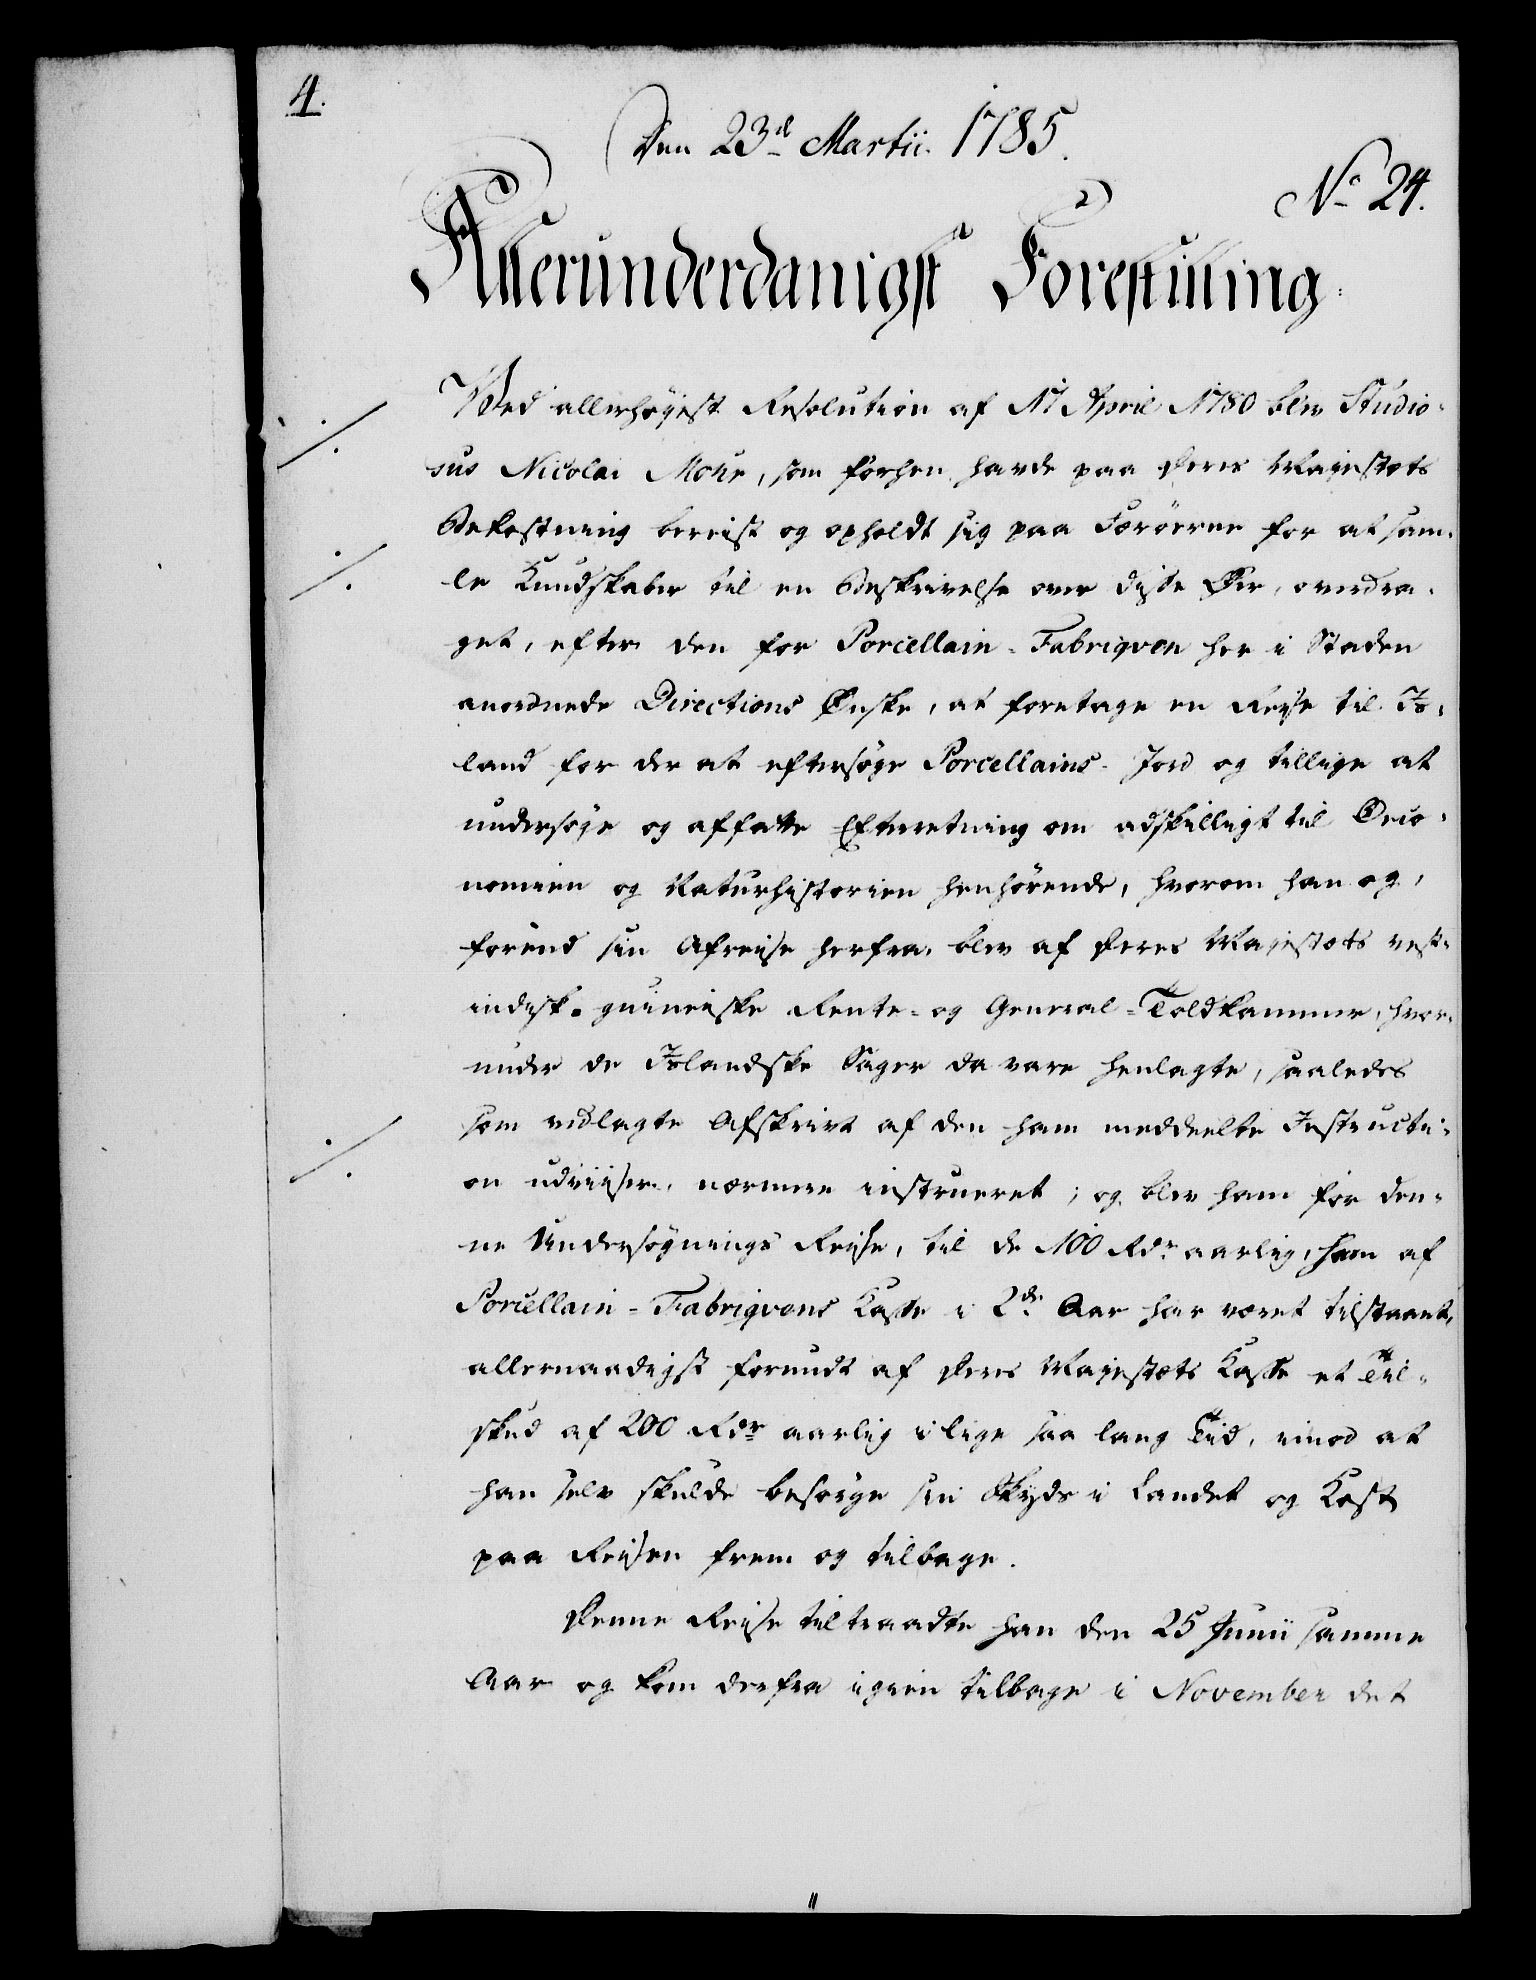 4.
Den 23d Martii 1785.
No 24.
Allerunderdanigst Forestilling.
Ved allerhøyest Resolution af 17 April 1780 blev Studio-
sus Nicolai Mohr, som forhen havde paa Deres Majestæts
Bekostning bereist og opholdt sig paa Færöerne for at sam-
le Kundskaber til en Beskrivelse over disse Øer, overdra-
get, efter den for Porcellain-Fabriqven her i Staden
anordnede Directions Ønske, at foretage en Reyse til Is-
land for der at eftersøge Porcellains-Jord og tillige at
undersøge og affatte Efterretning om adskilligt til Oeco-
nomien og Naturhistorien henhörende, hvorom han og,
forend sin Afreise herfra, blev af Deres Majestæts vest-
indisk-guineiske Rente- og General-Toldkammer, hvor-
under de Islandske Sager da vare henlagte, saaledes
som vedlagte Afskrivt af den ham meddeelte Instructi-
on udviiser, nærmere instrueret; og blev ham for den-
ne Undersøgnings Reise, til de 100 Rdr aarlig, ham af
Porcellain-Fabriqvens Kasse i 2de Aar har været tilstaaet,
allernaadigst forundt af Deres Majestæts Kasse et Til-
skud af 200 Rdr aarlig i lige saa lang Tid, imod at
han selv skulde besørge sin Skyds i Landet og Kost
paa Reisen frem og tilbage.
Denne Reise tiltraadte han den 25 Junii samme
Aar og kom derfra igien tilbage i November det